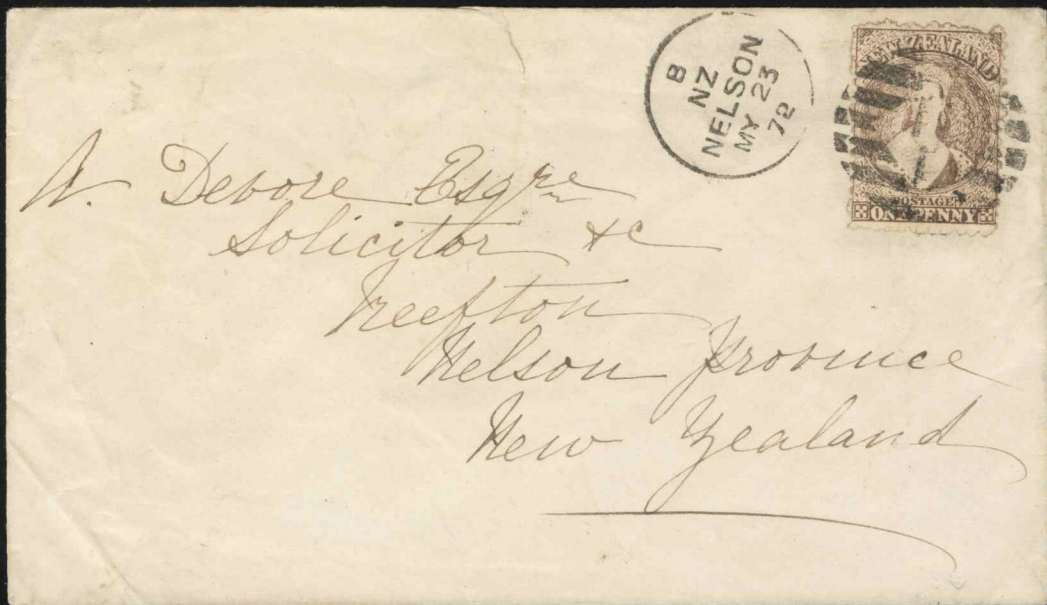 B
NZ
NELSON
MY 23
72
NEW ZEALAND
POSTAGE
ONE PENNY
A. Devore Esqre
Solicitor &c
Reefton
Nelson Province
New Zealand